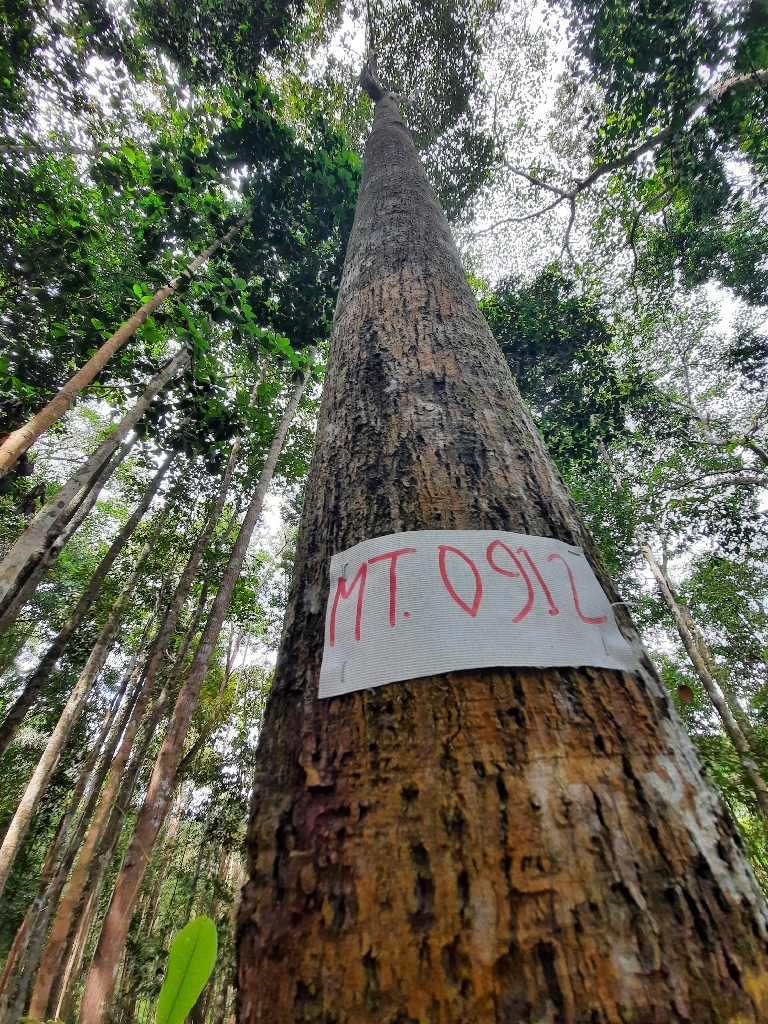 MT. 0912